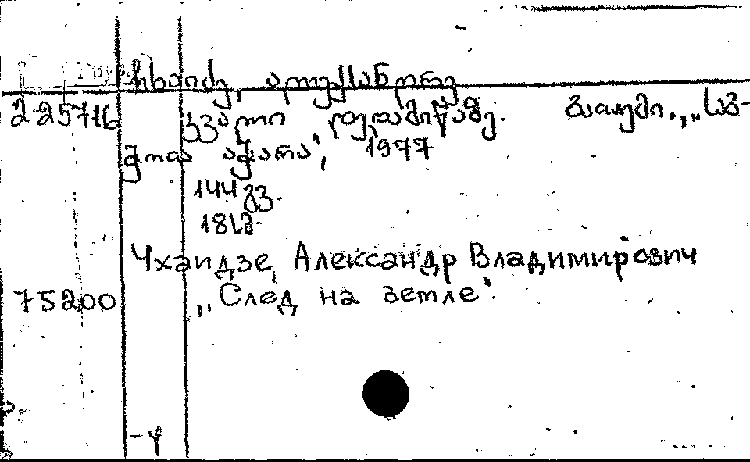 ჩხაიძე, ალექსანდრე
225716 კვალი დედამიწაზე. ბათუმი., „საბ-
ჭოთა აჭარა“, 1977
144 გვ.
Чхаидзе, Александр Владимирович
75200 „След на земле“.